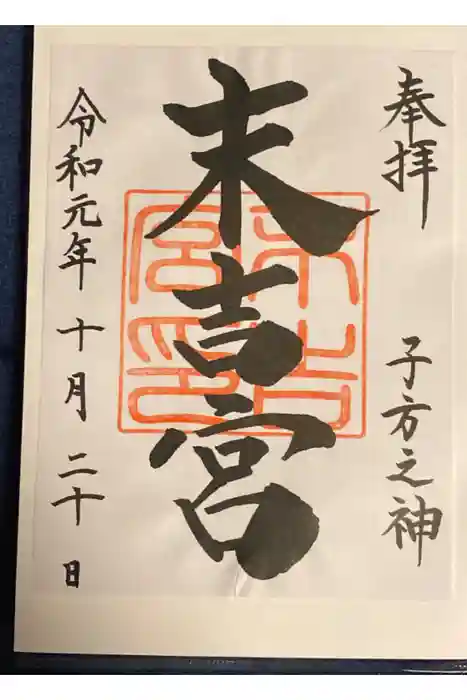 奉拝
子方之神
末吉宮
末吉宮印
令和元年 十月 二十 日